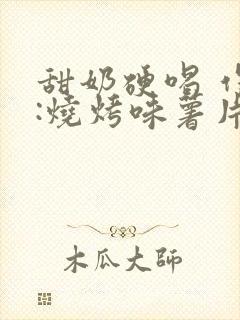 甜奶硬唱
:燒烤味薯片
木瓜大師